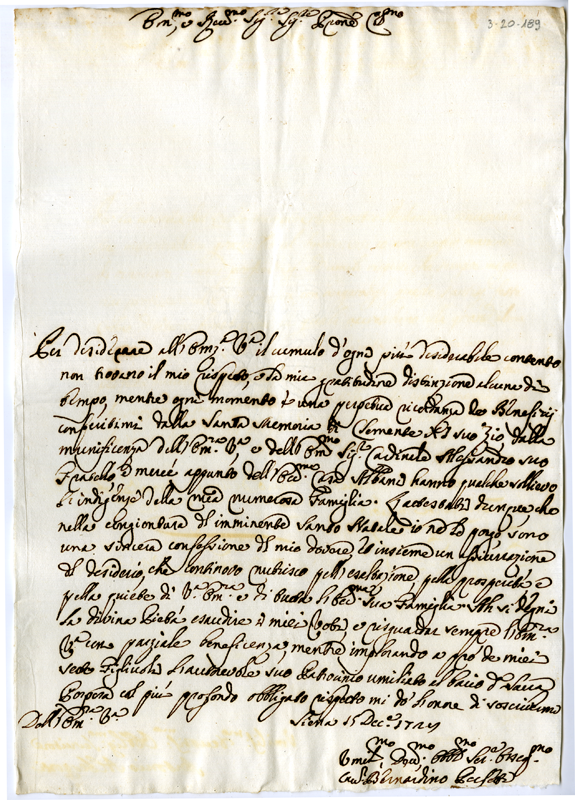 3-20-189
Em.mo, e Rev.mo Sig.re Sig.re Prone Col.mo
Per desiderare all'Em.za V.ra il cumulo d'ogni più desiderabile contento
non trovano il mio rispetto, e la mia gratitudine distinzione alcuna di
tempo, mentre ogni momento è una perpetua ricordanza de Benefizij
conferitimi dalla Santa Memoria di Clemente XI suo Zio, dalla
munificenza dell'Em.za V.ra, e dell'Em.mo Sig.re Cardinale Alessandro suo
Fratello, mercè appunto dell'Ecc.ma Casa Albani hanno qualche sollievo
l'indigenze della mia numerosa Famiglia. che
nella congiontura dell'imminente Santo Natale io ne porgo sono
una sincera confessione di mio dovere, et insieme un
del desiderio, che continovo nutrisco dell'esaltazione, della prosperità e
della quiete di V.ra Em.za e di tutta l'Ecc.ma Sua Famiglia. Si degni
la divina Pietà esaudire i miei Voti e risguardar sempre l'Em.za
V.ra con parziale beneficenza, mentre implorando a prò de miei
sette Figliuoli l'autorevole suo Patrocinio umiliato al bacio della Sacra
Porpora col più profondo obbligato rispetto mi dò l'honore di
Dell'Em.za V.ra
Siena 15 Dec.e 1724
Um.mo Dev.mo Obb.mo Ser.e Osseq.mo
Cav.re Bernardino Perfetti